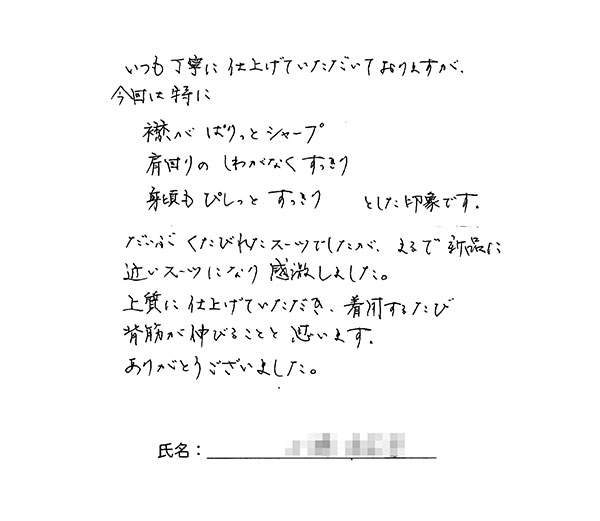 いつも丁寧に仕上げていただいておりますが、
今回は特に
襟がぱりっとシャープ
肩回りのしわがなくすっきり
身頃もぴしっとすっきり とした印象です。
だいぶくたびれたスーツでしたが、まるで新品に
近いスーツになり感激しました。
上質に仕上げていただき、着用するたび
背筋が伸びることと思います。
ありがとうございました。
氏名：